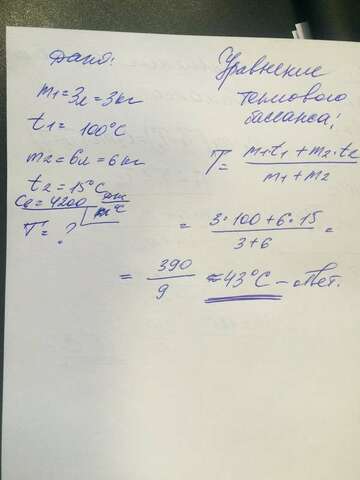 Дано:
m₁ = 3л = 3кг
t₁ = 100°C
m₂ = 6л = 6кг
t₂ = 15°C
Cв = 4200 Дж/кг°C
T = ?
Уравнение
теплового
баланса:
T = m₁t₁ + m₂·t₂ / m₁ + m₂
= 3·100 + 6·15 / 3+6 =
= 390 / 9 ≈ 43°C – ответ.